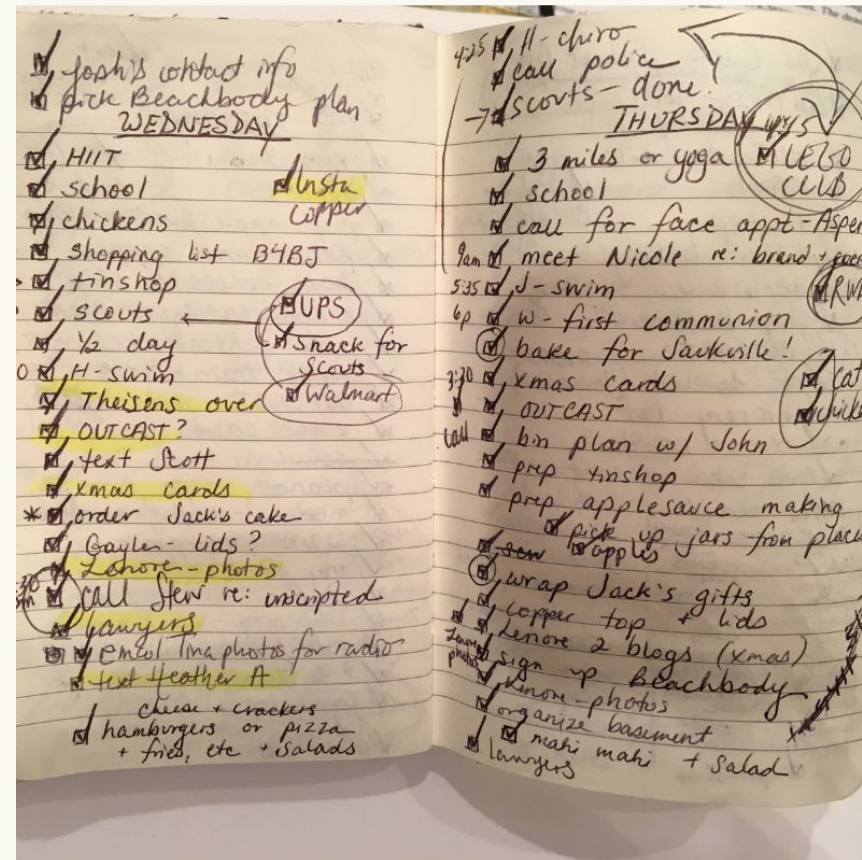 Josh's contact info
pick Beachbody plan
WEDNESDAY
HIIT
school
Insta
copper
chickens
shopping list B4BJ
tinshop
scouts
UPS
1/2 day
snack for
scouts
H-swim
Walmart
Theisens over
OUTCAST?
text Scott
xmas cards
* order Jack's cake
Gayle - lids?
Lenore - photos
call Stew re: unscripted
lawyers
email Tina photos for radio
text Heather A
cheese + crackers
hamburgers or pizza
+ fries, etc + salads
4:25 H-chiro
call police
→ scouts - done!
THURSDAY
3 miles or yoga
LEGO
CLUB
school
call for face appt - Aspen
9am meet Nicole re: brand +
5:35 J-swim
6p W-first communion
bake for Sackville!
3:30 xmas cards
OUTCAST
call bin plan w/ John
prep tinshop
prep applesauce making
pick up jars from place
sew apples
wrap Jack's gifts
copper top + lids
Lenore 2 blogs (xmas)
Lenore
photos
sign up Beachbody
Lenore-photos
organize basement
mahi mahi + salad
lawyers